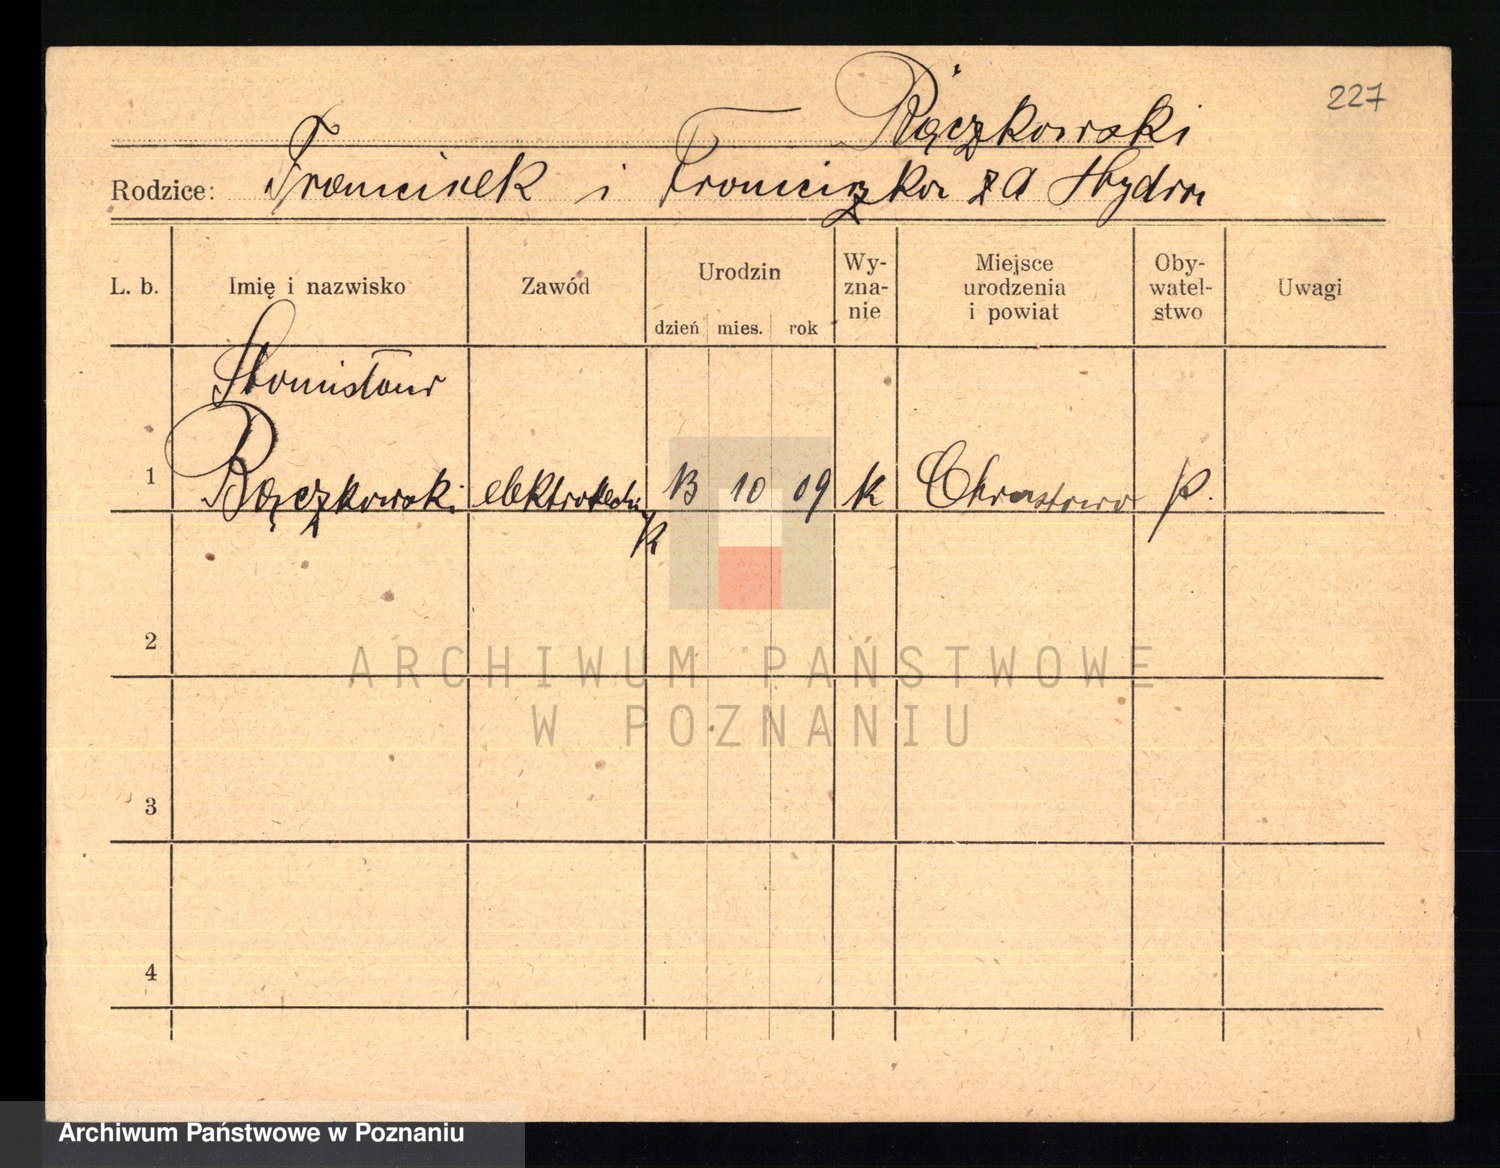 227
Rączkowski
Rodzice: Franciszek i Franciszka za Hydra
L. b. Imię i nazwisko Zawód Urodzin Wy-zna-nie Miejsce urodzenia i powiat Oby-watel-stwo Uwagi
dzień mies. rok
Stanisław
1 Rączkowski elektrotechnik 13 10 09 k Chrustowo p.
2
ARCHIWUM PAŃSTWOWE
W POZNANIU
3
4
Archiwum Państwowe w Poznaniu